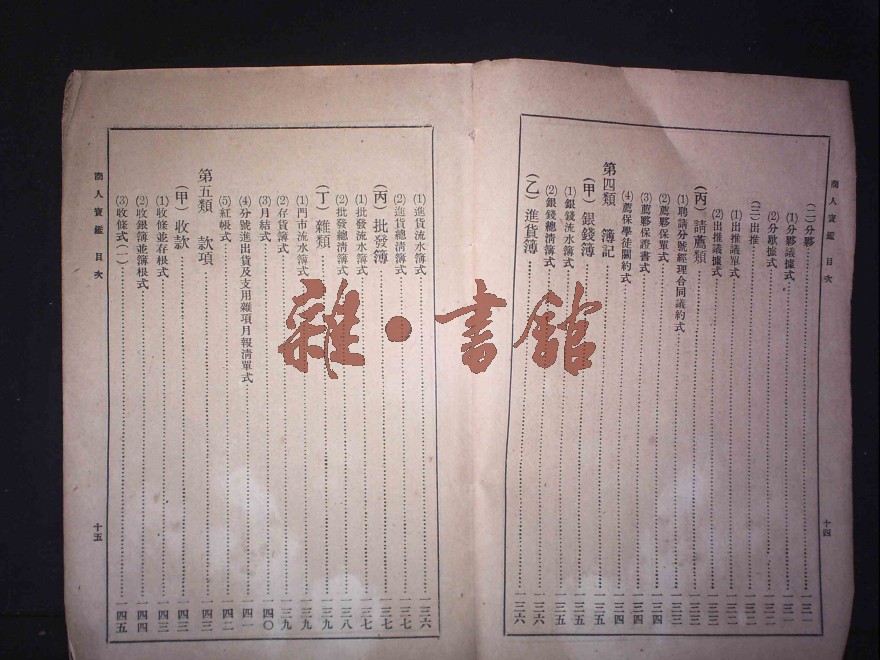 商人寶鑑　目次
(二)分夥……一三一
(1)分夥議據式……一三一
(2)分歇據式……一三二
(三)出推……一三二
(1)出推議單式……一三二
(2)出推議據式……一三三
(丙)請薦類……一三三
(1)聘請分號經理合同議約式……一三三
(2)薦夥保單式……一三四
(3)薦夥保證書式……一三四
(4)薦保學徒關約式……一三四
第四類　簿記
(甲)銀錢簿……一三五
(1)銀錢流水簿式……一三五
(2)銀錢總淸簿式……一三六
(乙)進貨簿……一三六
十四
(1)進貨流水簿式……一三六
(2)進貨總淸簿式……一三七
(丙)批發簿……一三七
(1)批發流水簿式……一三七
(2)批發總淸簿式……一三八
(丁)雜類……一三九
(1)門市流水簿式……一三九
(2)存貨簿式……一三九
(3)月結式……一四〇
(4)分號進出貨及支用雜項月報淸單式……一四一
(5)紅帳式……一四二
第五類　款項……一四三
(甲)收款……一四三
(1)收條並存根式……一四三
(2)收銀簿並簿根式……一四四
(3)收條式(一)……一四五
商人寶鑑　目次
十五
雜・書館